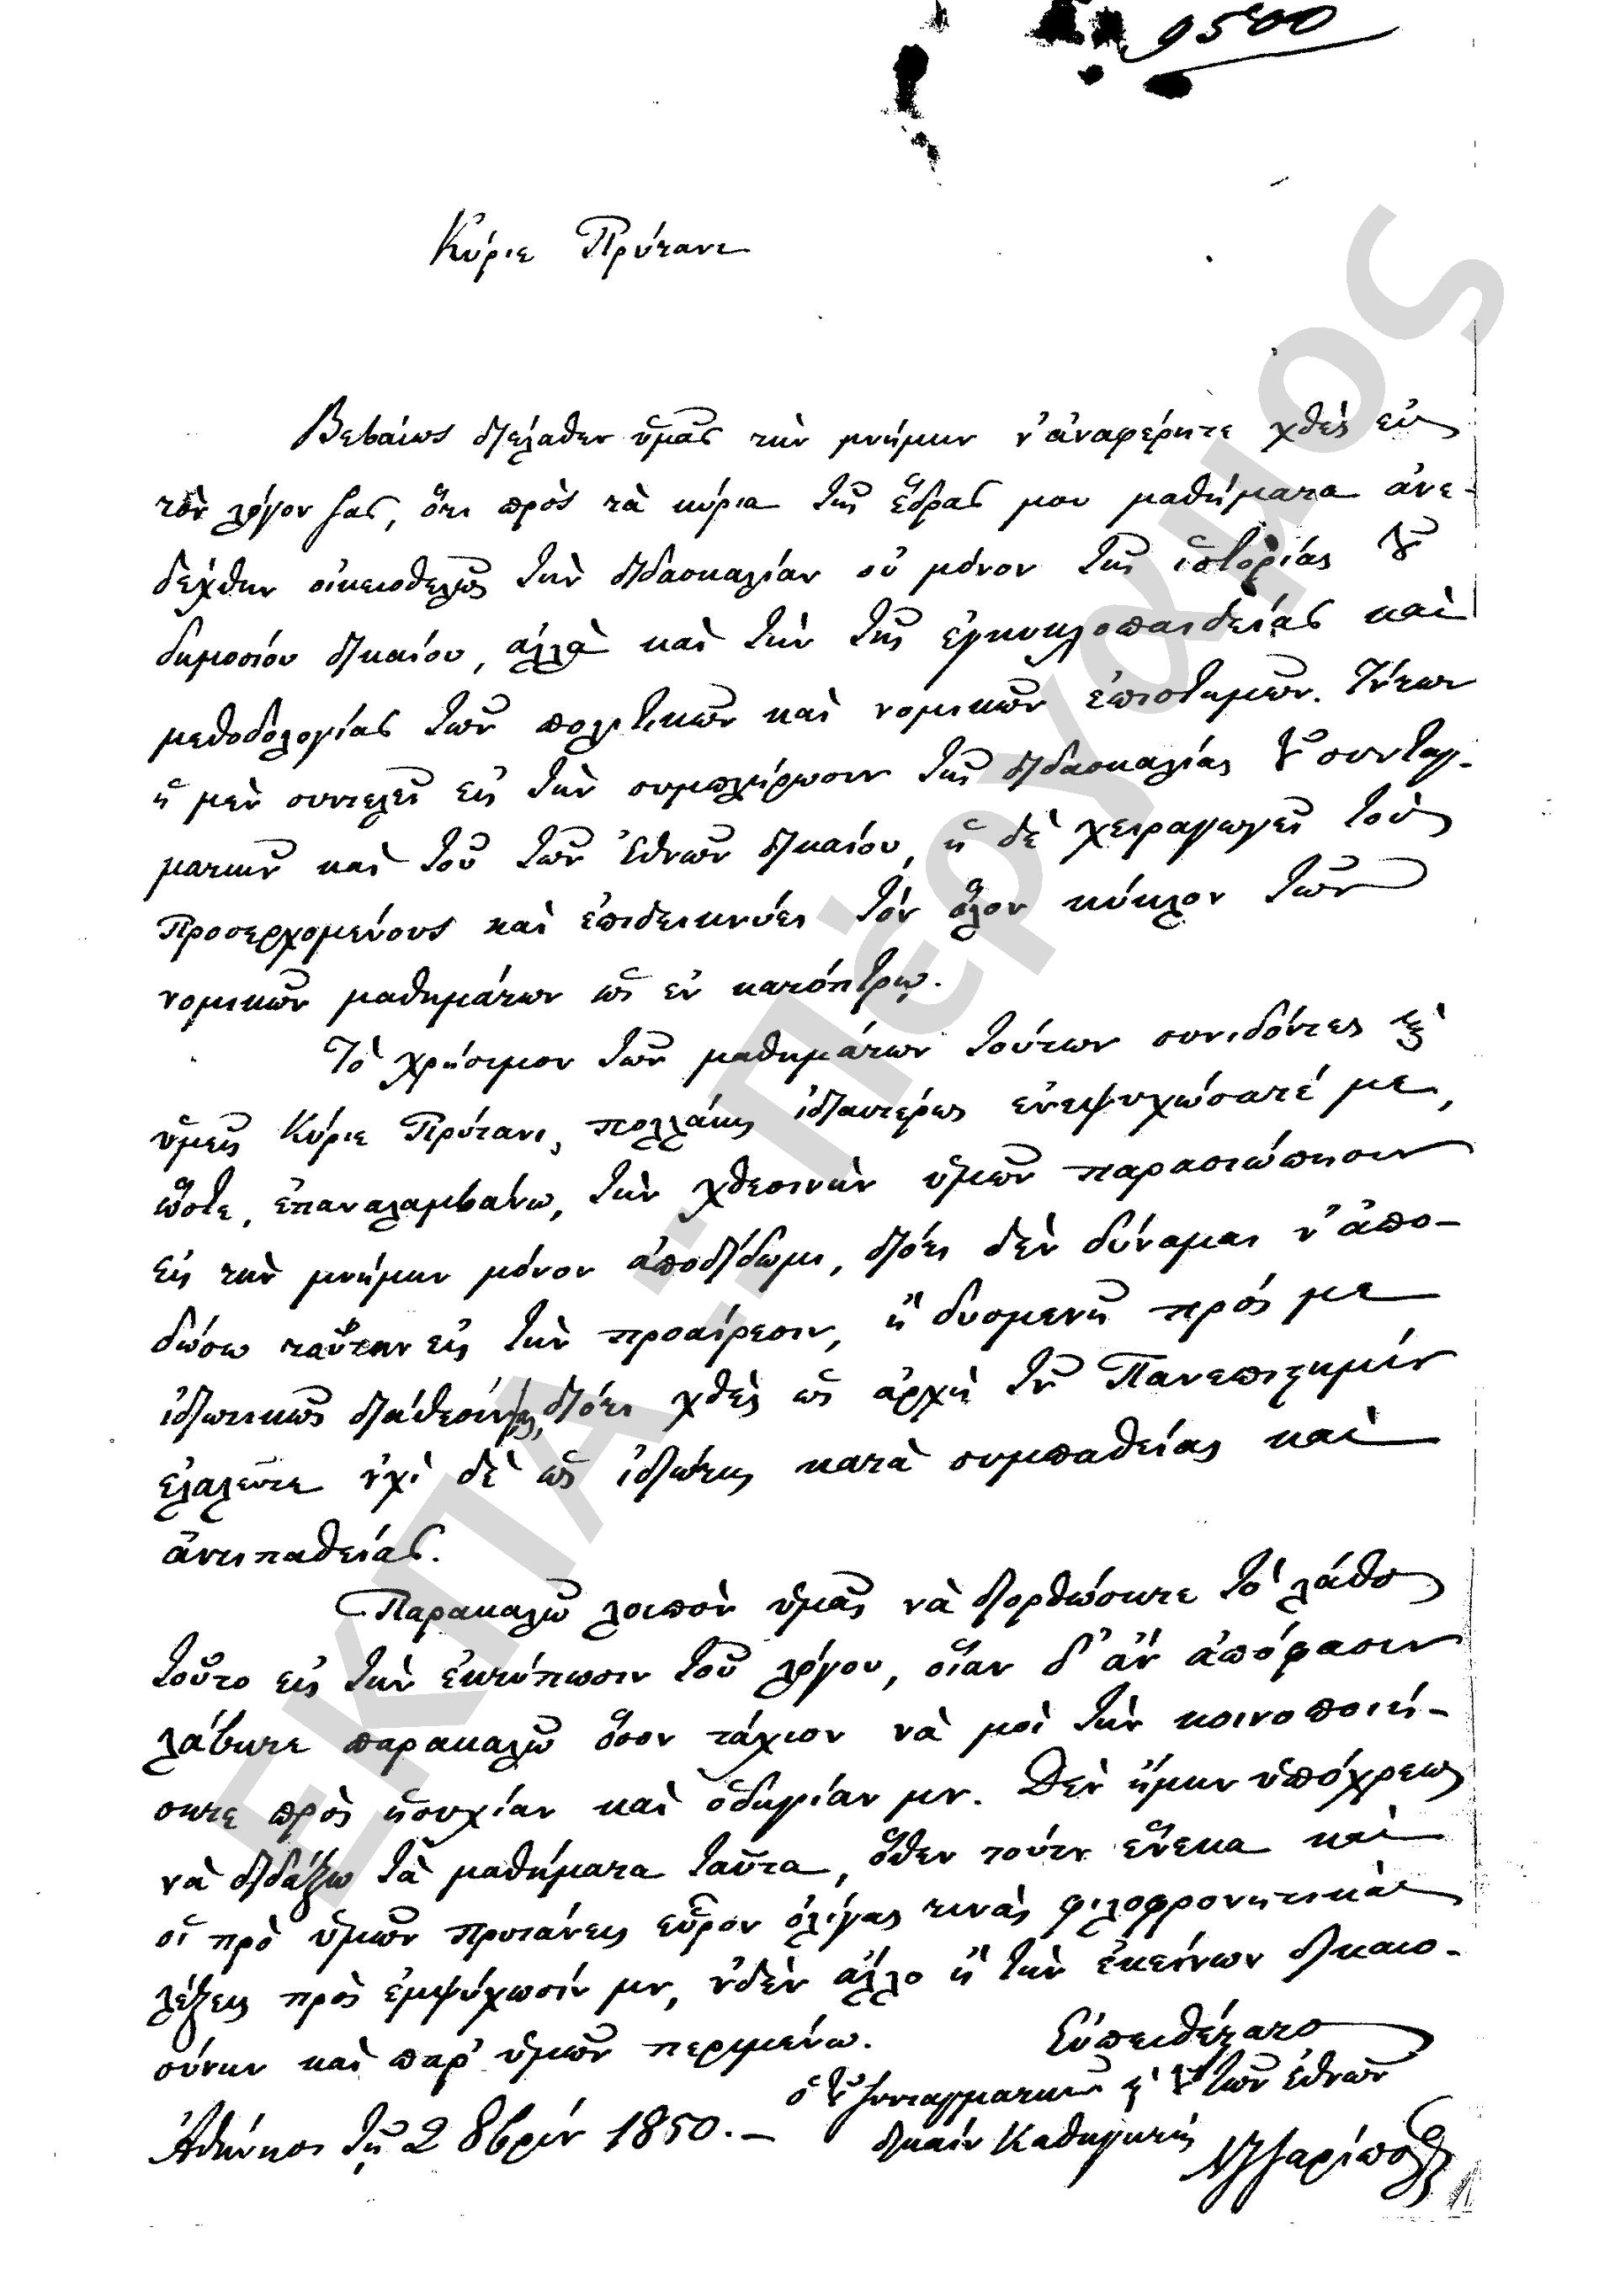 9500
Κύριε Πρύτανι
Βεβαίως διέλαθεν ὑμᾶς τὴν μνήμην ν' ἀναφέρητε χθὲς εἰς
τὸν λόγον σας, ὅτι πρὸς τὰ κύρια τῆς ἕδρας μου μαθήματα ἀνε-
δέχθην οἰκειοθελῶς τὴν διδασκαλίαν οὐ μόνον τῆς ἱστορίας τοῦ
δημοσίου δικαίου, ἀλλὰ καὶ τὴν τῆς ἐγκυκλοπαιδείας καὶ
μεθοδολογίας τῶν πολιτικῶν καὶ νομικῶν ἐπιστημῶν. Τούτων
ἡ μὲν συντελεῖ εἰς τὴν συμπλήρωσιν τῆς διδασκαλίας τοῦ συνταγ-
ματικοῦ καὶ τοῦ τῶν Ἐθνῶν δικαίου, ἡ δὲ χειραγωγεῖ τοὺς
προσερχομένους καὶ ἐπιδεικνύει τὸν ὅλον κύκλον τῶν
νομικῶν μαθημάτων ὡς ἐν κατόπτρῳ.
Τὸ χρήσιμον τῶν μαθημάτων τούτων συνιδόντες καὶ
ὑμεῖς Κύριε Πρύτανι, πολλάκις ἰδιαιτέρως ἐνεψυχώσατέ με,
ὥστε, ἐπαναλαμβάνω, τὴν χθεσινὴν ὑμῶν παρασιώπησιν
εἰς τὴν μνήμην μόνον ἀποδίδωμι, διότι δὲν δύναμαι ν' ἀπο-
δώσω ταύτην εἰς τὴν προαίρεσιν, ἢ δυσμενῆ πρός με
ἰδιωτικῶς διάθεσίν σας, διότι χθὲς ὡς ἀρχὴ τοῦ Πανεπιστημίου
ἐλαλεῖτε οὐχὶ δὲ ὡς ἰδιώτης κατὰ συμπαθείας καὶ
ἀντιπαθείας.
Παρακαλῶ λοιπὸν ὑμᾶς νὰ διορθώσητε τὸ λάθος
τοῦτο εἰς τὴν ἐκτύπωσιν τοῦ λόγου, οἵαν δ' ἂν ἀπόφασιν
λάβητε παρακαλῶ ὅσον τάχιον νὰ μοὶ τὴν κοινοποιή-
σητε πρὸς ἡσυχίαν καὶ ὁδηγίαν μου. Δὲν ἤμην ὑπόχρεως
νὰ διδάξω τὰ μαθήματα ταῦτα, ὅθεν τούτου ἕνεκα καὶ
οἱ πρὸ ὑμῶν πρυτάνεις εὗρον ὀλίγας τινὰς φιλοφρονητικὰς
λέξεις πρὸς ἐμψύχωσίν μου, οὐδὲν ἄλλο ἢ τὴν ἐκείνων δικαιο-
σύνην καὶ παρ' ὑμῶν περιμένω.
Εὐπειθέστατος
ὁ τοῦ Συνταγματικοῦ καὶ τοῦ τῶν ἐθνῶν
δικαίου Καθηγητὴς ΝΙΣαρίπολος
Ἀθήνησι τῇ 2 8βρίου 1850.—
ΕΚΠΑ - Πέργαμος